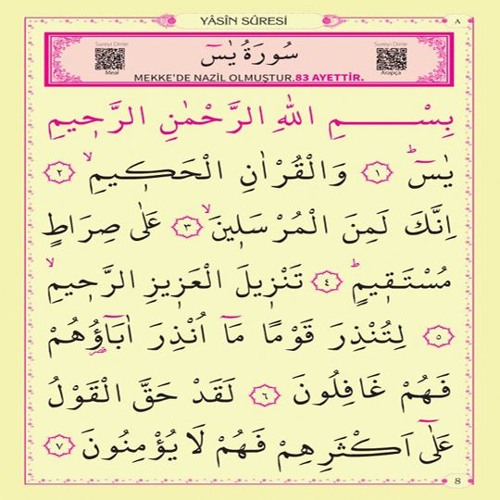 YÂSİN SÛRESİ ٨
Sureyi Dinle سُورَةُ يٰسٓ Sureyi Dinle
Meal Arapça
MEKKE'DE NAZİL OLMUŞTUR.83 AYETTİR.
بِسْــــــمِ اللّٰهِ الرَّحْمٰنِ الرَّح۪يمِ
يٰسٓۜ ﴿١﴾ وَالْقُرْاٰنِ الْحَك۪يمِۙ ﴿٢﴾
اِنَّكَ لَمِنَ الْمُرْسَل۪ينَۙ ﴿٣﴾ عَلٰى صِرَاطٍ
مُسْتَق۪يمٍۜ ﴿٤﴾ تَنْز۪يلَ الْعَز۪يزِ الرَّح۪يمِۙ
﴿٥﴾ لِتُنْذِرَ قَوْمًا مَٓا اُنْذِرَ اٰبَٓاؤُ۬هُمْ
فَهُمْ غَافِلُونَ ﴿٦﴾ لَقَدْ حَقَّ الْقَوْلُ
عَلٰٓى اَكْثَرِهِمْ فَهُمْ لَا يُؤْمِنُونَ ﴿٧﴾
8